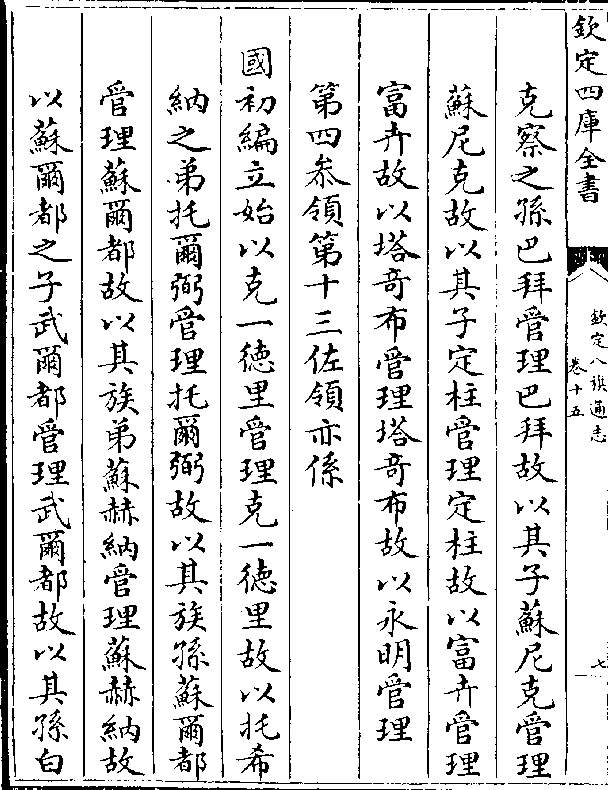 欽定四庫全書
欽定八旗通志
卷十五
七
克察之孫巴拜管理巴拜故以其子蘇尼克管理
蘇尼克故以其子定柱管理定柱故以富卉管理
富卉故以塔竒布管理塔竒布故以永明管理
第四叅領第十三佐領亦係
國初編立始以克一德里管理克一德里故以托希
納之弟托爾弼管理托爾弼故以其族孫蘇爾都
管理蘇爾都故以其族弟蘇赫納管理蘇赫納故
以蘇爾都之子武爾都管理武爾都故以其孫白